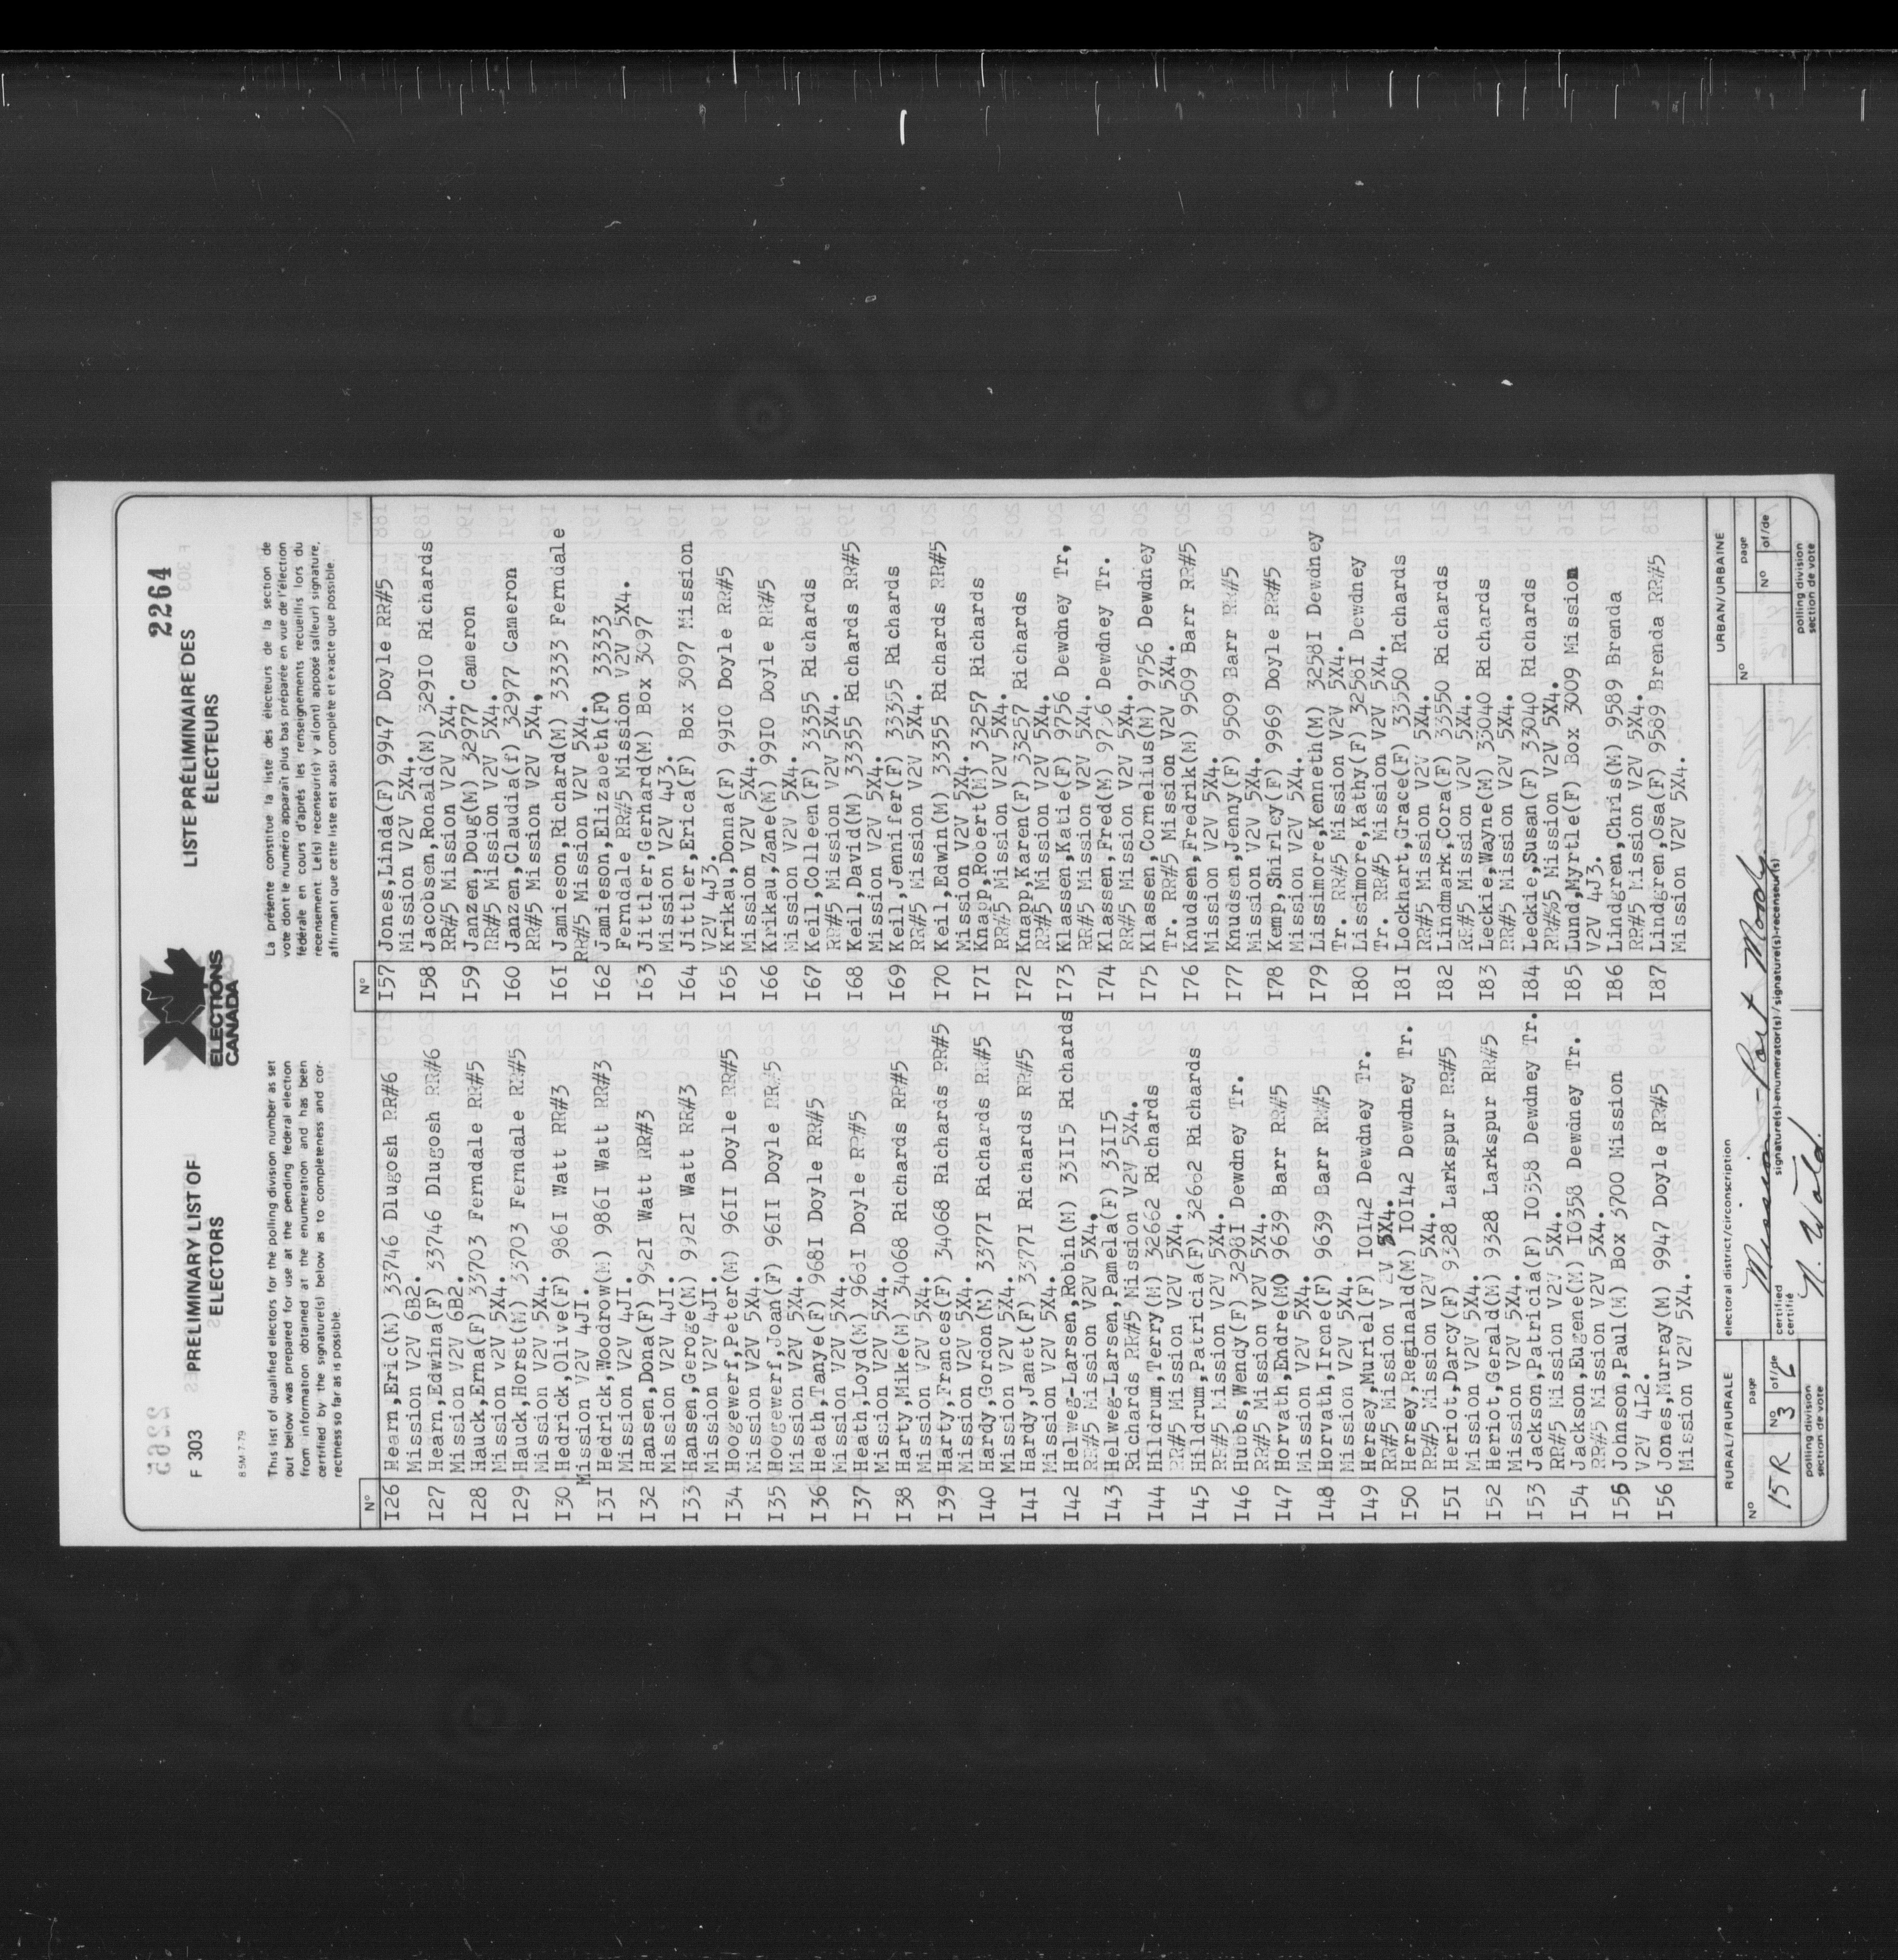 2264
F 303
PRELIMINARY LIST OF
ELECTORS
ELECTIONS
CANADA
LISTE PRÉLIMINAIRE DES
ÉLECTEURS
8 5M-7-79
This list of qualified electors for the polling division number as set
out below was prepared for use at the pending federal election
from information obtained at the enumeration and has been
certified by the signature(s) below as to completeness and cor-
rectness so far as is possible.
La présente constitue la liste des électeurs de la section de
vote dont le numéro apparaît plus bas préparée en vue de l'élection
fédérale en cours d'après les renseignements recueillis lors du
recensement. Le(s) recenseur(s) y a(ont) apposé sa(leur) signature,
affirmant que cette liste est aussi complète et exacte que possible.
N°
I26 Hearn,Eric(M) 33746 Dlugosh RR#6
Mission V2V 6B2.
I27 Hearn,Edwina(F) 33746 Dlugosh RR#6
Mission V2V 6B2.
I28 Hauck,Erna(F) 33703 Ferndale RR#5
Mission V2V 5X4.
I29 Hauck,Horst(M) 33703 Ferndale RR#5
Mission V2V 5X4.
I30 Hedrick,Olive(F) 986I Watt RR#3
Mission V2V 4JI.
I3I Hedrick,Woodrow(M) 986I Watt RR#3
Mission V2V 4JI.
I32 Hansen,Dona(F) 992I Watt RR#3
Mission V2V 4JI.
I33 Hansen,Geroge(M) 992I Watt RR#3
Mission V2V 4JI.
I34 Hoogewerf,Peter(M) 96II Doyle RR#5
Mission V2V 5X4.
I35 Hoogewerf,Joan(F) 96II Doyle RR#5
Mission V2V 5X4.
I36 Heath,Tanye(F) 968I Doyle RR#5
Mission V2V 5X4.
I37 Heath,Loyd(M) 968I Doyle RR#5
Mission V2V 5X4.
I38 Harty,Mike(M) 34068 Richards RR#5
Mission V2V 5X4.
I39 Harty,Frances(F) 34068 Richards RR#5
Mission V2V 5X4.
I40 Hardy,Gordon(M) 3377I Richards RR#5
Mission V2V 5X4.
I4I Hardy,Janet(F) 3377I Richards RR#5
Mission V2V 5X4.
I42 Helweg-Larsen,Robin(M) 33II5 Richards
RR#5 Mission V2V 5X4.
I43 Helweg-Larsen,Pamela(F) 33II5
Richards RR#5 Mission V2V 5X4.
I44 Hildrum,Terry(M) 32662 Richards
RR#5 Mission V2V 5X4.
I45 Hildrum,Patricia(F) 32662 Richards
RR#5 Mission V2V 5X4.
I46 Hubbs,Wency(F) 3298I Dewdney Tr.
RR#5 Mission V2V 5X4.
I47 Horvath,Endre(M) 9639 Barr RR#5
Mission V2V 5X4.
I48 Horvath,Irene(F) 9639 Barr RR#5
Mission V2V 5X4.
I49 Hersey,Muriel(F) IOI42 Dewdney Tr.
RR#5 Mission V2V 5X4.
I50 Hersey,Reginald(M) IOI42 Dewdney Tr.
RR#5 Mission V2V 5X4.
I5I Heriot,Darcy(F) 9328 Larkspur RR#5
Mission V2V 5X4.
I52 Heriot,Gerald(M) 9328 Larkspur RR#5
Mission V2V 5X4.
I53 Jackson,Patricia(F) IO358 Dewdney Tr.
RR#5 Mission V2V 5X4.
I54 Jackson,Eugene(M) IO358 Dewdney Tr.
RR#5 Mission V2V 5X4.
I55 Johnson,Paul(M) Box 3700 Mission
V2V 4L2.
I56 Jones,Murray(M) 9947 Doyle RR#5
Mission V2V 5X4.
N°
I57 Jones,Linda(F) 9947 Doyle RR#5
Mission V2V 5X4.
I58 Jacobsen,Ronald(M) 329IO Richards
RR#5 Mission V2V 5X4.
I59 Janzen,Doug(M) 32977 Cameron
RR#5 Mission V2V 5X4.
I60 Janzen,Claudia(f) 32977 Cameron
RR#5 Mission V2V 5X4,
I6I Jamieson,Richard(M) 33333 Ferndale
RR#5 Mission V2V 5X4.
I62 Jamieson,Elizabeth(F) 33333
Ferndale RR#5 Mission V2V 5X4.
I63 Jittler,Gerhard(M) Box 3097
Mission V2V 4J3.
I64 Jittler,Erica(F) Box 3097 Mission
V2V 4J3.
I65 Krikau,Donna(F) 99IO Doyle RR#5
Mission V2V 5X4.
I66 Krikau,Zane(M) 99IO Doyle RR#5
Mission V2V 5X4.
I67 Keil,Colleen(F) 33355 Richards
RR#5 Mission V2V 5X4.
I68 Keil,David(M) 33355 Richards RR#5
Mission V2V 5X4.
I69 Keil,Jennifer(F) 33355 Richards
RR#5 Mission V2V 5X4.
I70 Keil,Edwin(M) 33355 Richards RR#5
Mission V2V 5X4.
I7I Knapp,Robert(M) 33257 Richards
RR#5 Mission V2V 5X4.
I72 Knapp,Karen(F) 33257 Richards
RR#5 Mission V2V 5X4.
I73 Klassen,Katie(F) 9756 Dewdney Tr,
RR#5 Mission V2V 5X4.
I74 Klassen,Fred(M) 9756 Dewdney Tr.
RR#5 Mission V2V 5X4.
I75 Klassen,Cornelius(M) 9756 Dewdney
Tr. RR#5 Mission V2V 5X4.
I76 Knudsen,Fredrik(M) 9509 Barr RR#5
Mission V2V 5X4.
I77 Knudsen,Jenny(F) 9509 Barr RR#5
Mission V2V 5X4.
I78 Kemp,Shirley(F) 9969 Doyle RR#5
Mission V2V 5X4.
I79 Lissimore,Kenneth(M) 3258I Dewdney
Tr. RR#5 Mission V2V 5X4.
I80 Lissimore,Kathy(F) 3258I Dewdney
Tr. RR#5 Mission V2V 5X4.
I8I Lockhart,Grace(F) 33550 Richards
RR#5 Mission V2V 5X4.
I82 Lindmark,Cora(F) 33550 Richards
RR#5 Mission V2V 5X4.
I83 Leckie,Wayne(M) 33040 Richards
RR#5 Mission V2V 5X4.
I84 Leckie,Susan(F) 33040 Richards
RR#%5 Mission V2V 5X4.
I85 Lund,Myrtle(F) Box 3009 Mission
V2V 4J3.
I86 Lindgren,Chris(M) 9589 Brenda
RR#5 Mission V2V 5X4.
I87 Lindgren,Osa(F) 9589 Brenda RR#5
Mission V2V 5X4.
RURAL/RURALE
N° 15 R
page
N° 3 of/de 6
polling division
section de vote
electoral district/circonscription
Mission - Port Moody.
certified
certifié
N. Wold.
signature(s)-enumerator(s)/signature(s)-recenseur(s)
URBAN/URBAINE
N°
page
N° of/de
polling division
section de vote